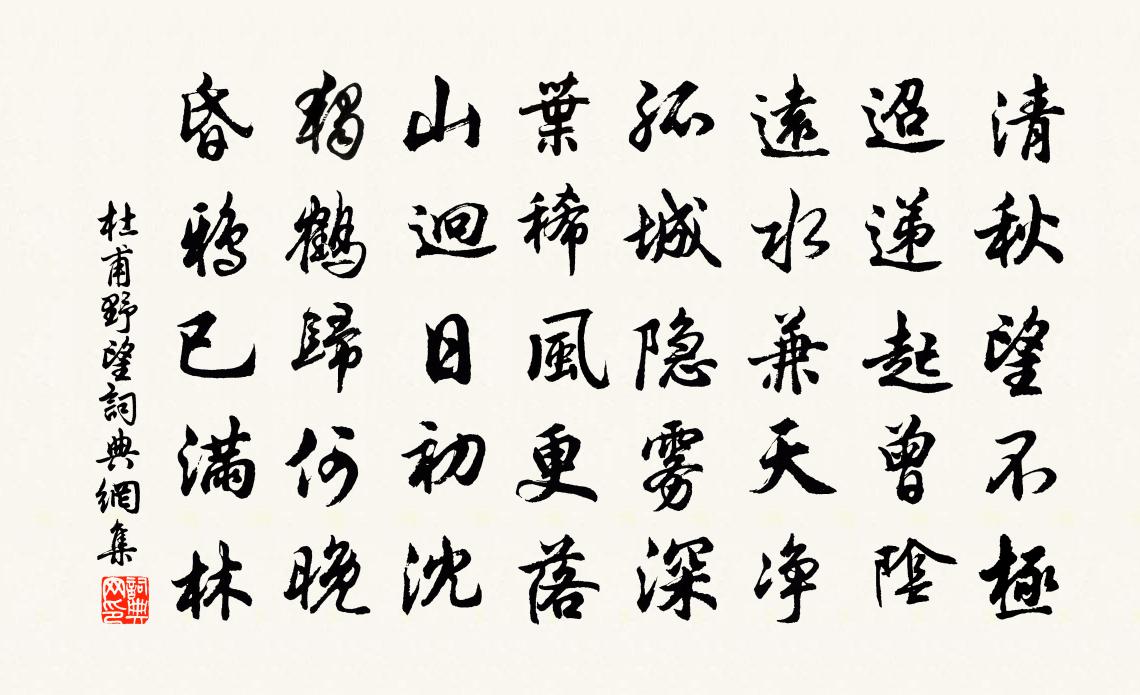 清秋望不極
迢递起曾陰
遠水兼天净
孤城隐雾深
葉稀風更落
山迥日初沈
獨鶴歸何晚
昏鴉已满林
杜甫野望詞典網集
詞典網印